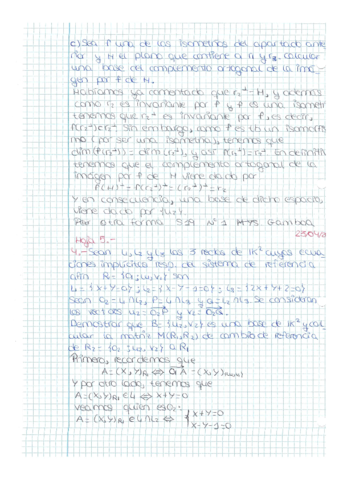 c) Sea f una de las isometrías del apartado ante
rior y H el plano que contiene a r1 y r2. Calcular
una base del complemento ortogonal de la ima-
gen por f de H.
Habíamos ya comentado que r2⊥=H, y además
como r2 es invariante por f y f es una isometr
tenemos que r2⊥ es invariante por f, es decir,
f(r2⊥)⊂r2⊥ sin embargo, como f es tb un isomorfis
mo (por ser una isometría), tenemos que
dim(f(r2⊥)) = dim(r2⊥), y así f(r2⊥)=r2⊥. En definitiva
tenemos que el complemento ortogonal de la
imagen por f de H viene dado por
f(H)⊥ = f(r2⊥)⊥ = (r2⊥)⊥ = r2
Y en consecuencia, una base de dicho espacio,
viene dada por {u2}
otra forma
Hoja 5.-
4.- Sean L1, L2 y L3 las 3 rectas de ℝ² cuyas ecua
ciones implícitas resp. del sistema de referencia
afín R1 = {O1; u1, v1} son
L1 = {x+y=0}; L2 = {x-y-1=0}; L3 = {2x+y+2=0}
Sean O2 = L1∩L2, P = L1∩L3 y Q = L2∩L3. Se consideran
los vectores u2 = O2P y v2 = O2Q.
Demostrar que B2 {u2, v2} es una base de ℝ² y cal
cular la matriz M(R1, R2) de cambio de referencia
de R2 = {O2; u2, v2} a R1
Primero, recordemos que
A = (x,y)R1 ⟺ O1A = (x,y)
Y por otro lado, tenemos que
A = (x,y)R1 ∈ L1 ⟺ x+y=0
veamos quien es O2:
A = (x,y)R1 ∈ L1∩L2 ⟺ { x+y=0
x-y-1=0